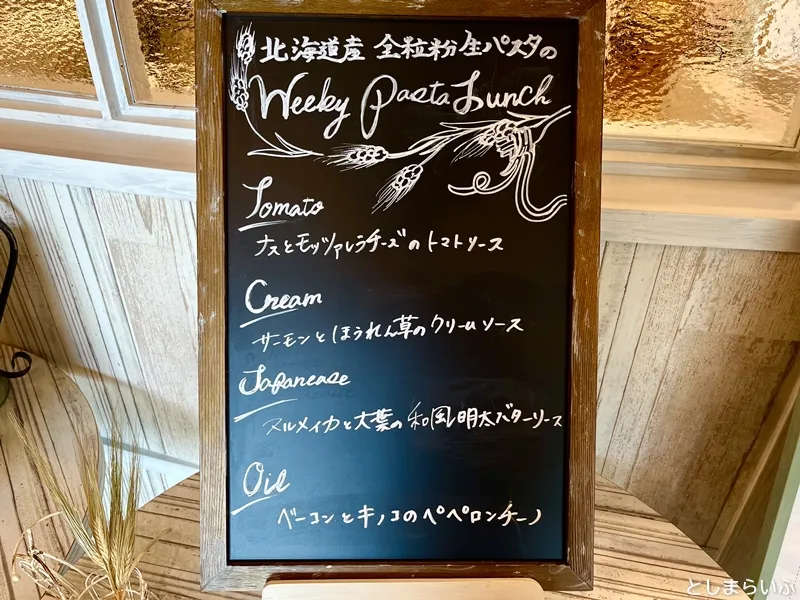 北海道産 全粒粉生パスタの
Weeky Pasta Lunch
Tomato
ナスとモッツァレラチーズのトマトソース
Cream
サーモンとほうれん草のクリームソース
Japanease
ヌルメイカと大葉の和風明太バターソース
Oil
ベーコンとキノコのペペロンチーノ
としまらいふ